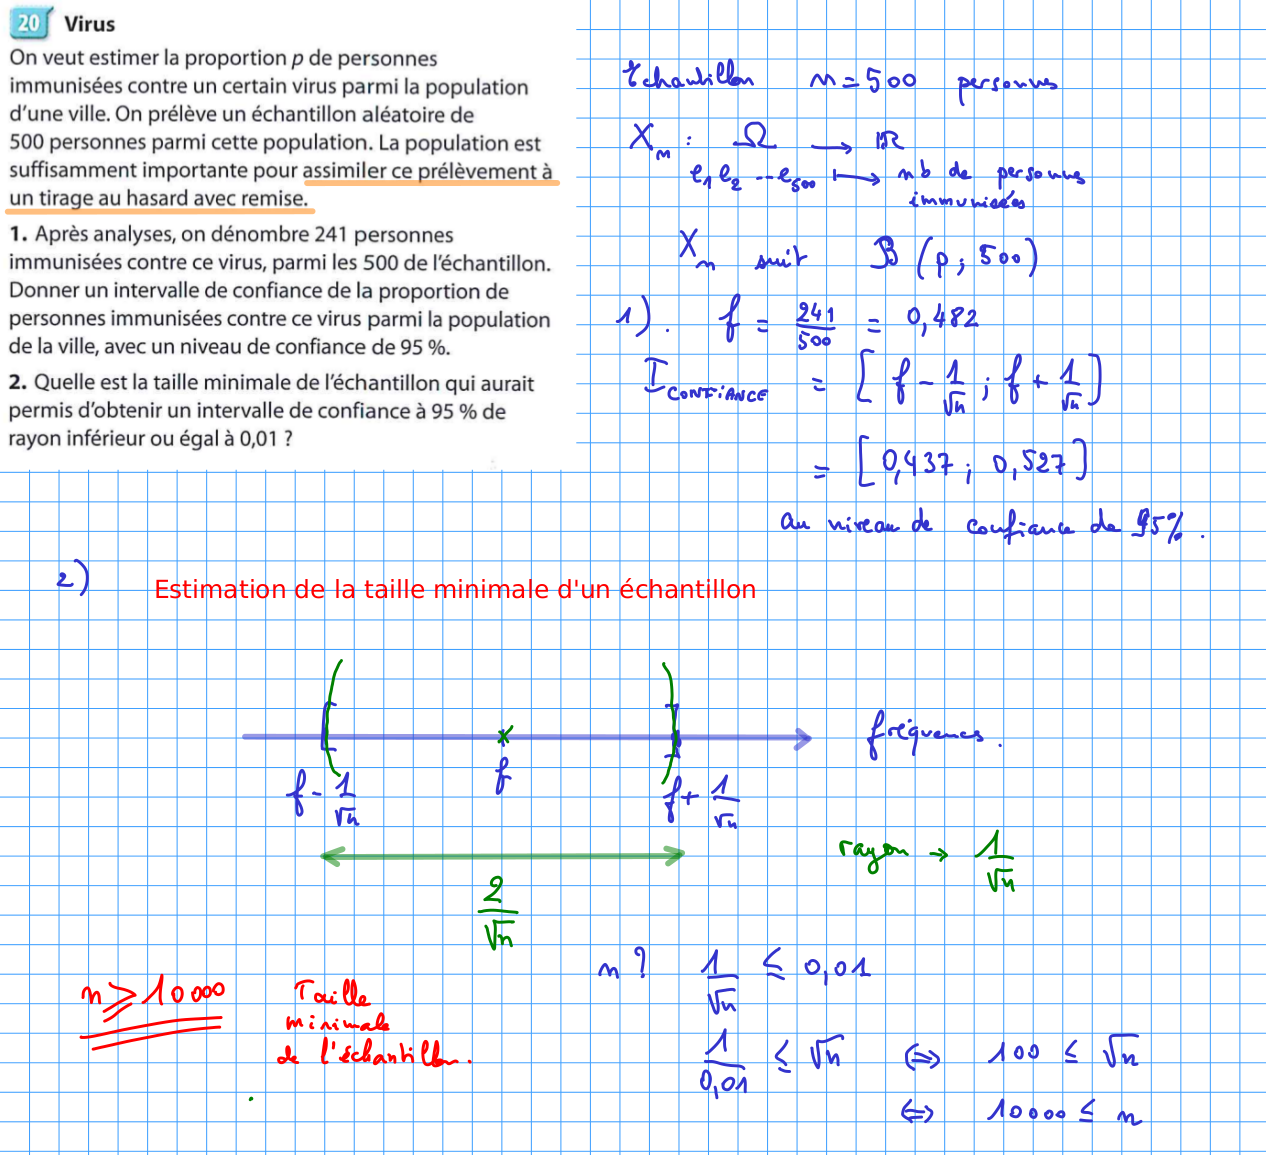 20 Virus
On veut estimer la proportion p de personnes
immunisées contre un certain virus parmi la population
d'une ville. On prélève un échantillon aléatoire de
500 personnes parmi cette population. La population est
suffisamment importante pour assimiler ce prélèvement à
un tirage au hasard avec remise.
1. Après analyses, on dénombre 241 personnes
immunisées contre ce virus, parmi les 500 de l'échantillon.
Donner un intervalle de confiance de la proportion de
personnes immunisées contre ce virus parmi la population
de la ville, avec un niveau de confiance de 95 %.
2. Quelle est la taille minimale de l'échantillon qui aurait
permis d'obtenir un intervalle de confiance à 95 % de
rayon inférieur ou égal à 0,01 ?
Echantillon n = 500 personnes
Xₙ : Ω → ℝ
e₁ e₂ --e₅₀₀ ↦ nb de personnes
immunisées
Xₙ suit B (p ; 500)
1). f = 241/500 = 0,482
I CONFIANCE = [ f - 1/√n ; f + 1/√n ]
= [ 0,437 ; 0,527 ]
au niveau de confiance de 95%.
2) Estimation de la taille minimale d'un échantillon
fréquences.
f - 1/√n f f + 1/√n
rayon → 1/√n
2/√n
n? 1/√n ≤ 0,01
n ≥ 10000 Taille
minimale
de l'échantillon.
1/0,01 ≤ √n ⇔ 100 ≤ √n
⇔ 10000 ≤ n